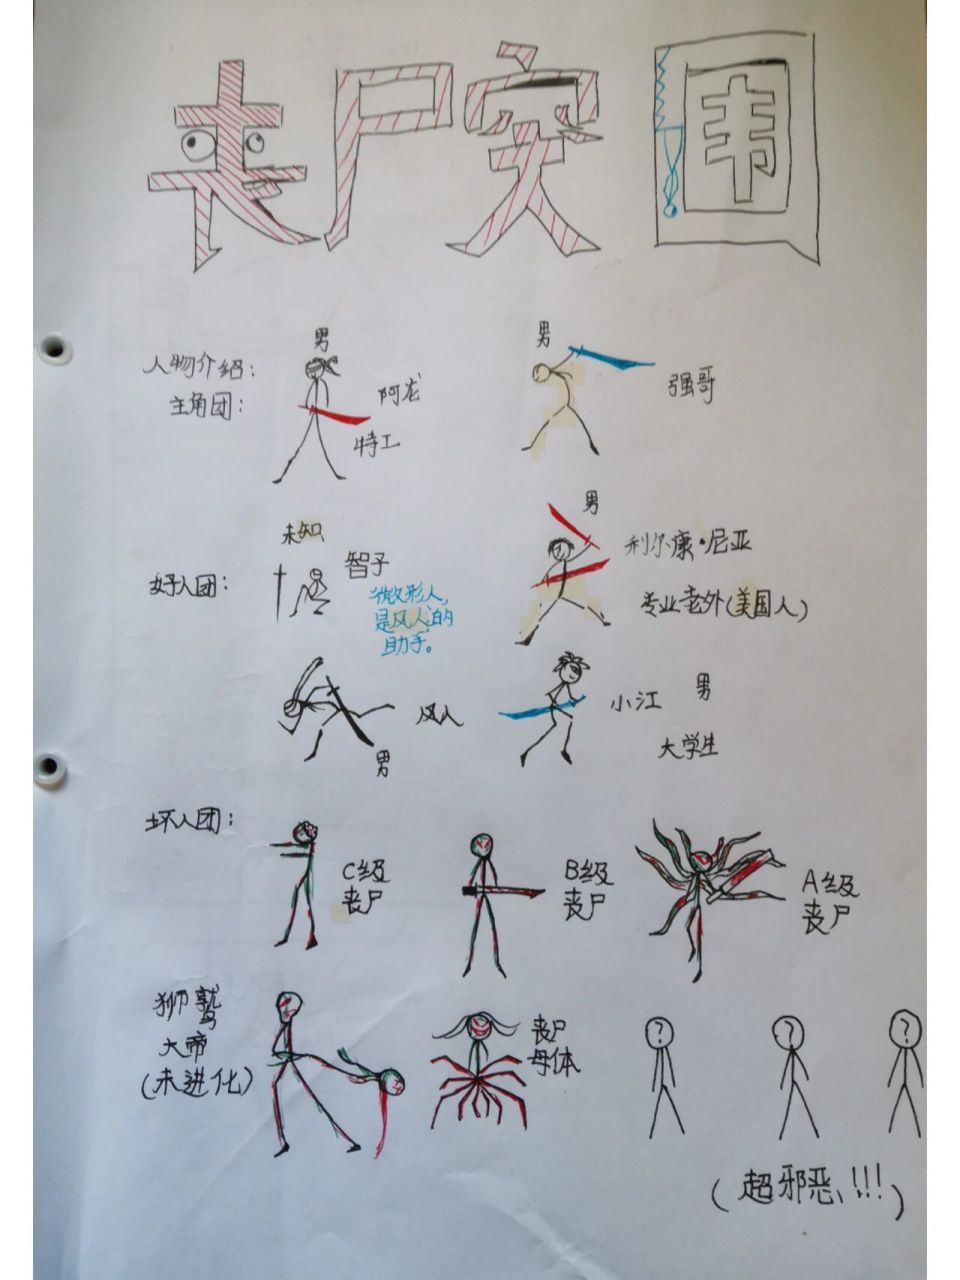 丧尸安围
人物介绍：
主角团：
男
阿龙
特工
男
强哥
好人团：
未知
智子
微形人，
是风人的
助手。
男
利尔康·尼亚
专业老外（美国人）
风人
男
小江
男
大学生
坏人团：
C级
丧尸
B级
丧尸
A级
丧尸
狮鹫
大帝
（未进化）
丧尸
母体
?
?
?
（超邪恶、!!!）